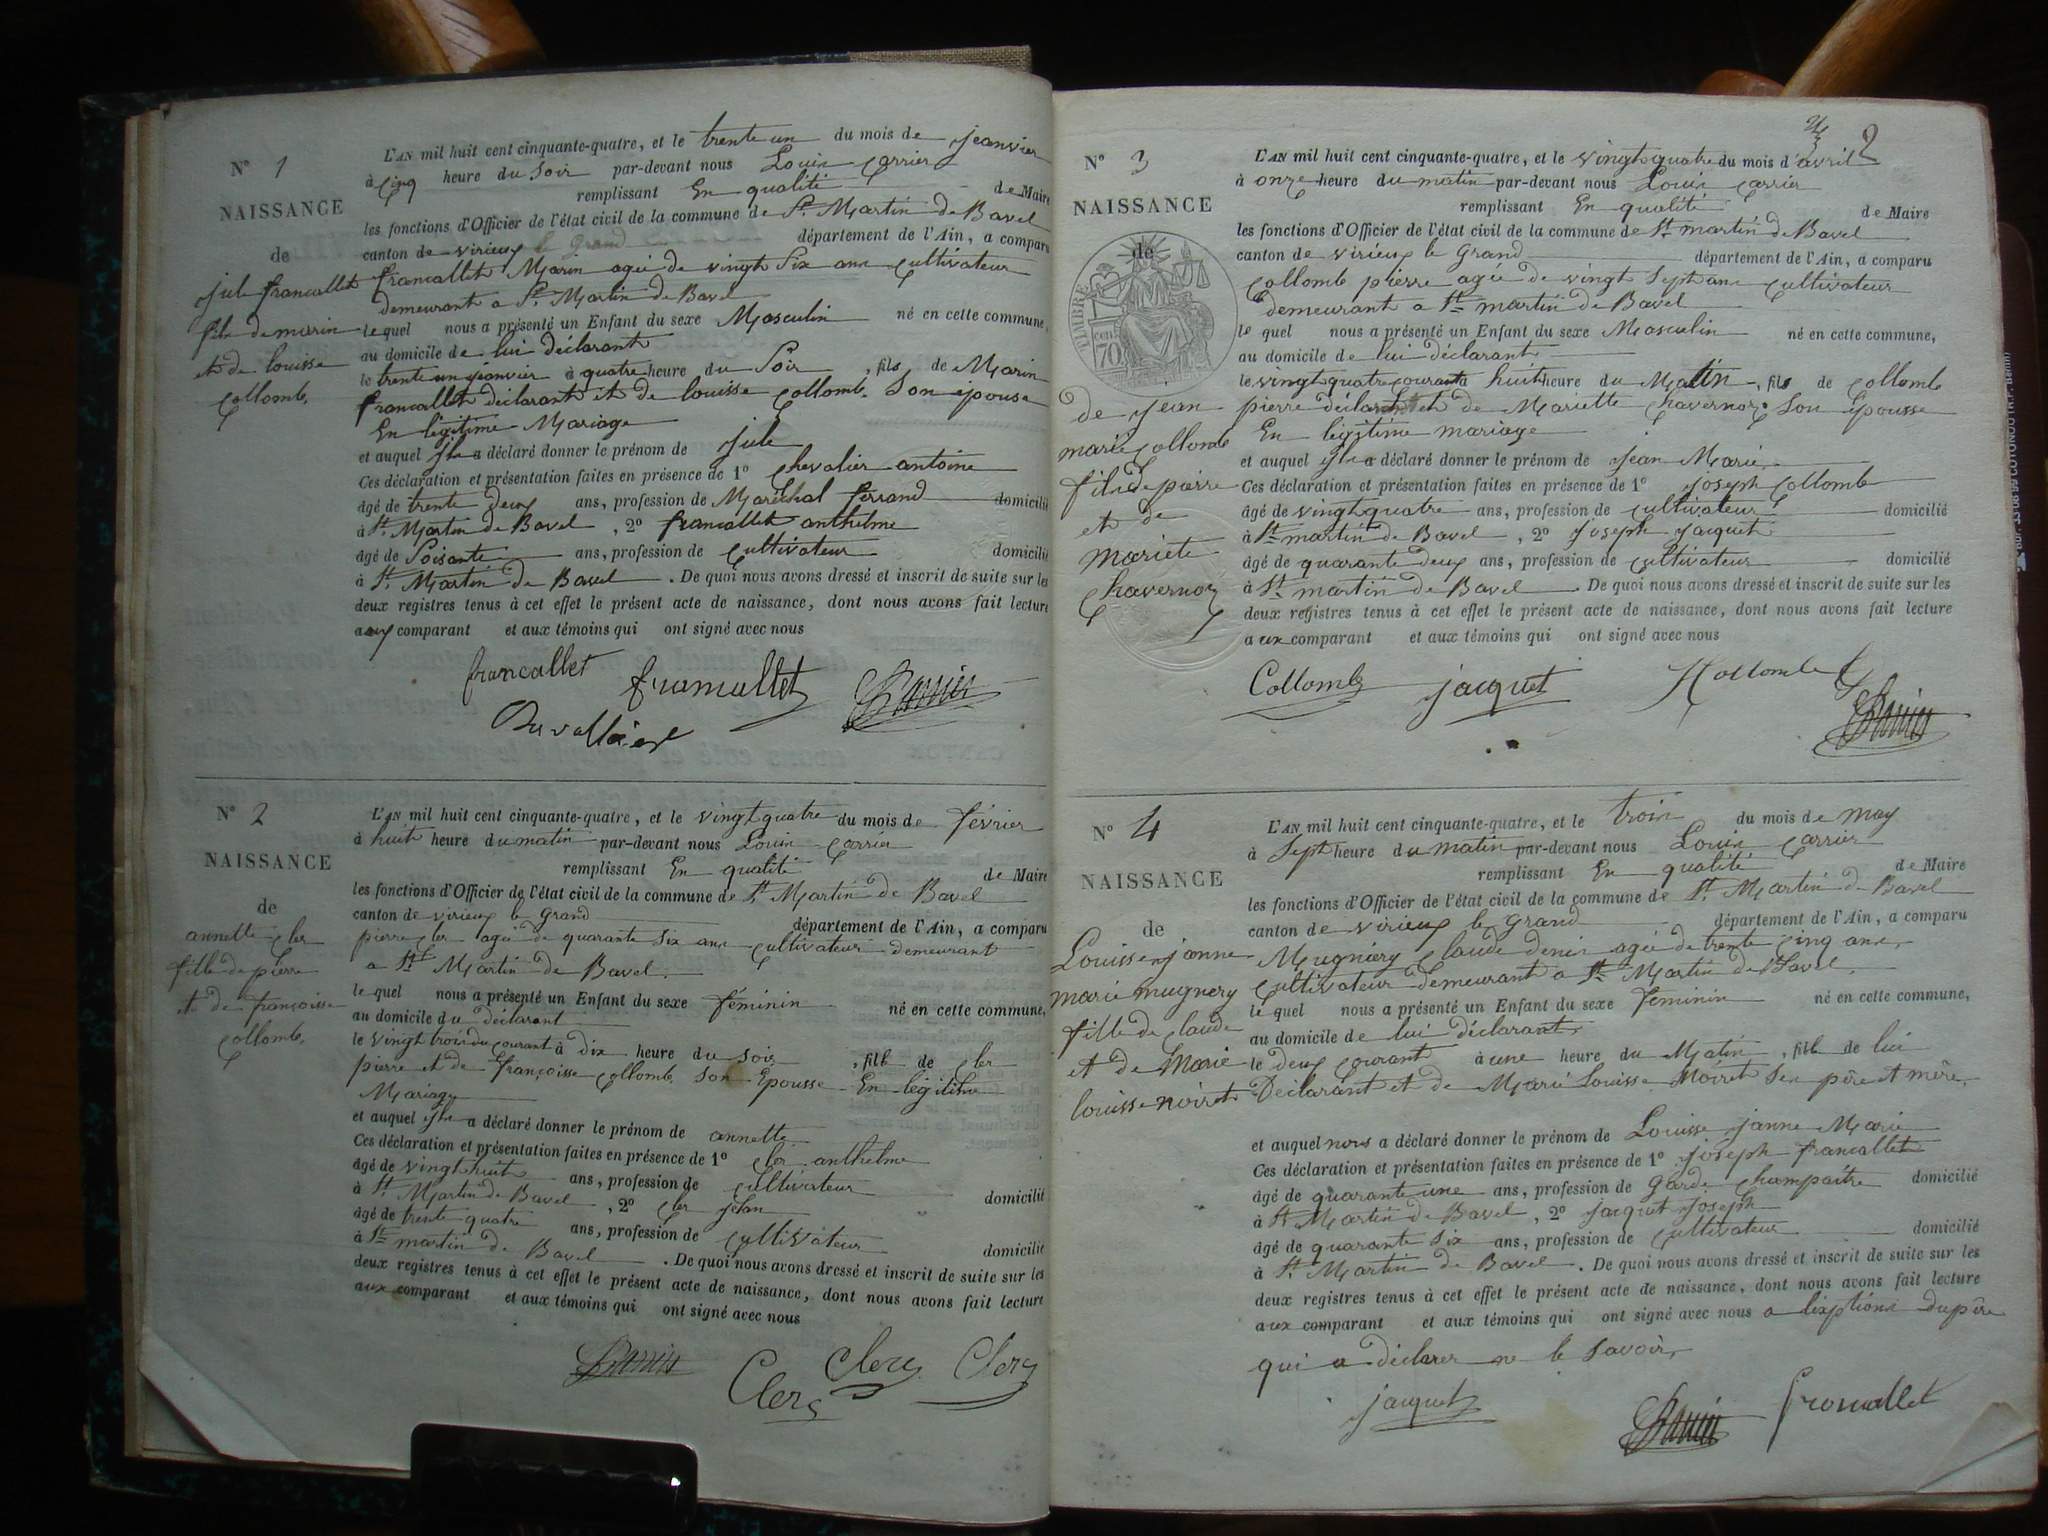 N° 1
NAISSANCE
de
jule francallet
fils de marin
et de louisse
Collomb,
L'AN mil huit cent cinquante-quatre, et le trente un du mois de jeanvier
à Cinq heure du Soir par-devant nous Louis Carrier
remplissant En qualité de Maire
les fonctions d'Officier de l'état civil de la commune de St Martin de Bavel
canton de virieux le grand département de l'Ain, a comparu
francallet Marin agée de vingt Six ans Cultivateur
demeurant a St Martin de Bavel
le quel nous a présenté un Enfant du sexe Masculin né en cette commune,
au domicile de lui déclarant
le trente un jeanvier à quatre heure du Soir, fils de Marin
francallet déclarant et de louisse Collomb. Son épouse
En légitime Mariage
et auquel il a déclaré donner le prénom de jule
Ces déclaration et présentation faites en présence de 1° Chevalier antoine
âgé de trente deux ans, profession de Maréchal ferrand domicilié
à St. Martin de Bavel, 2° francallet anthelme
âgé de Soisante ans, profession de Cultivateur domicilié
à St. Martin de Bavel. De quoi nous avons dressé et inscrit de suite sur les
deux registres tenus à cet effet le présent acte de naissance, dont nous avons fait lecture
aux comparant et aux témoins qui ont signé avec nous
francallet francallet
N° 2
NAISSANCE
de
annette Cler
fille de pierre
et de françoisse
Collomb.
L'AN mil huit cent cinquante-quatre, et le vingt quatre du mois de février
à huit heure du matin par-devant nous Louis Carrier
remplissant En qualité de Maire
les fonctions d'Officier de l'état civil de la commune de St Martin de Bavel
canton de virieux le grand département de l'Ain, a comparu
pierre Cler agée de quarante six ans Cultivateur demeurant
a St Martin de Bavel.
le quel nous a présenté un Enfant du sexe féminin né en cette commune,
au domicile du déclarant
le vingt trois du courant à dix heure du soir, fille de Cler
pierre et de françoisse Collomb Son Epousse En légitime
Mariage
et auquel il a déclaré donner le prénom de annette
Ces déclaration et présentation faites en présence de 1° Cler anthelme
âgé de vingt huit ans, profession de Cultivateur domicilié
à St Martin de Bavel, 2° Cler jean
âgé de trente quatre ans, profession de Cultivateur domicilié
à St martin de Bavel. De quoi nous avons dressé et inscrit de suite sur les
deux registres tenus à cet effet le présent acte de naissance, dont nous avons fait lecture
aux comparant et aux témoins qui ont signé avec nous
Clerc Clerc Clerc
2
N° 3
NAISSANCE
de
TIMBRE
70
de jean
marie Collomb
fils de pierre
et de
mariete
Chavernoz
L'AN mil huit cent cinquante-quatre, et le vingt quatre du mois d'avril
à onze heure du matin par-devant nous Louis Carrier
remplissant En qualité de Maire
les fonctions d'Officier de l'état civil de la commune de St martin de Bavel
canton de virieux le Grand département de l'Ain, a comparu
Collomb pierre agée de vingt Sept ans Cultivateur
demeurant a St martin de Bavel
le quel nous a présenté un Enfant du sexe Masculin né en cette commune,
au domicile de lui déclarant
le vingt quatre courant à huit heure du Matin, fils de Collomb
pierre déclarant et de Mariette Chavernoz Son Epousse
En légitime mariage
et auquel il a déclaré donner le prénom de jean Marie
Ces déclaration et présentation faites en présence de 1° joseph Collomb
âgé de vingt quatre ans, profession de Cultivateur domicilié
à St martin de Bavel, 2° joseph jacquet
âgé de quarante deux ans, profession de Cultivateur domicilié
à St martin de Bavel. De quoi nous avons dressé et inscrit de suite sur les
deux registres tenus à cet effet le présent acte de naissance, dont nous avons fait lecture
aux comparant et aux témoins qui ont signé avec nous
Collomb jacquet
N° 4
NAISSANCE
de
Louisse janne
marie mugnery
fille de claude
et de Marie
louisse noiret
L'AN mil huit cent cinquante-quatre, et le trois du mois de may
à Sept heure du matin par-devant nous Louis Carrier
remplissant En qualité de Maire
les fonctions d'Officier de l'état civil de la commune de St. Martin de Bavel
canton de virieux le grand département de l'Ain, a comparu
Mugniery Claude denis agée de trente Cinq ans,
Cultivateur demeurant a St Martin de Bavel.
le quel nous a présenté un Enfant du sexe féminin né en cette commune,
au domicile de lui déclarant
le deux courant à une heure du Matin, fille de lui
Déclarant et de Marie Louisse Noiret Ses père et mère,
et auquel nous a déclaré donner le prénom de Louisse janne Marie
Ces déclaration et présentation faites en présence de 1° joseph francallet
âgé de quarante une ans, profession de garde Champaitre domicilié
à St Martin de Bavel, 2° jacquet joseph
âgé de quarante six ans, profession de Cultivateur domicilié
à St. Martin de Bavel. De quoi nous avons dressé et inscrit de suite sur les
deux registres tenus à cet effet le présent acte de naissance, dont nous avons fait lecture
aux comparant et aux témoins qui ont signé avec nous a lixption du père
qui a déclarer ne le Savoir,
jacquet francallet